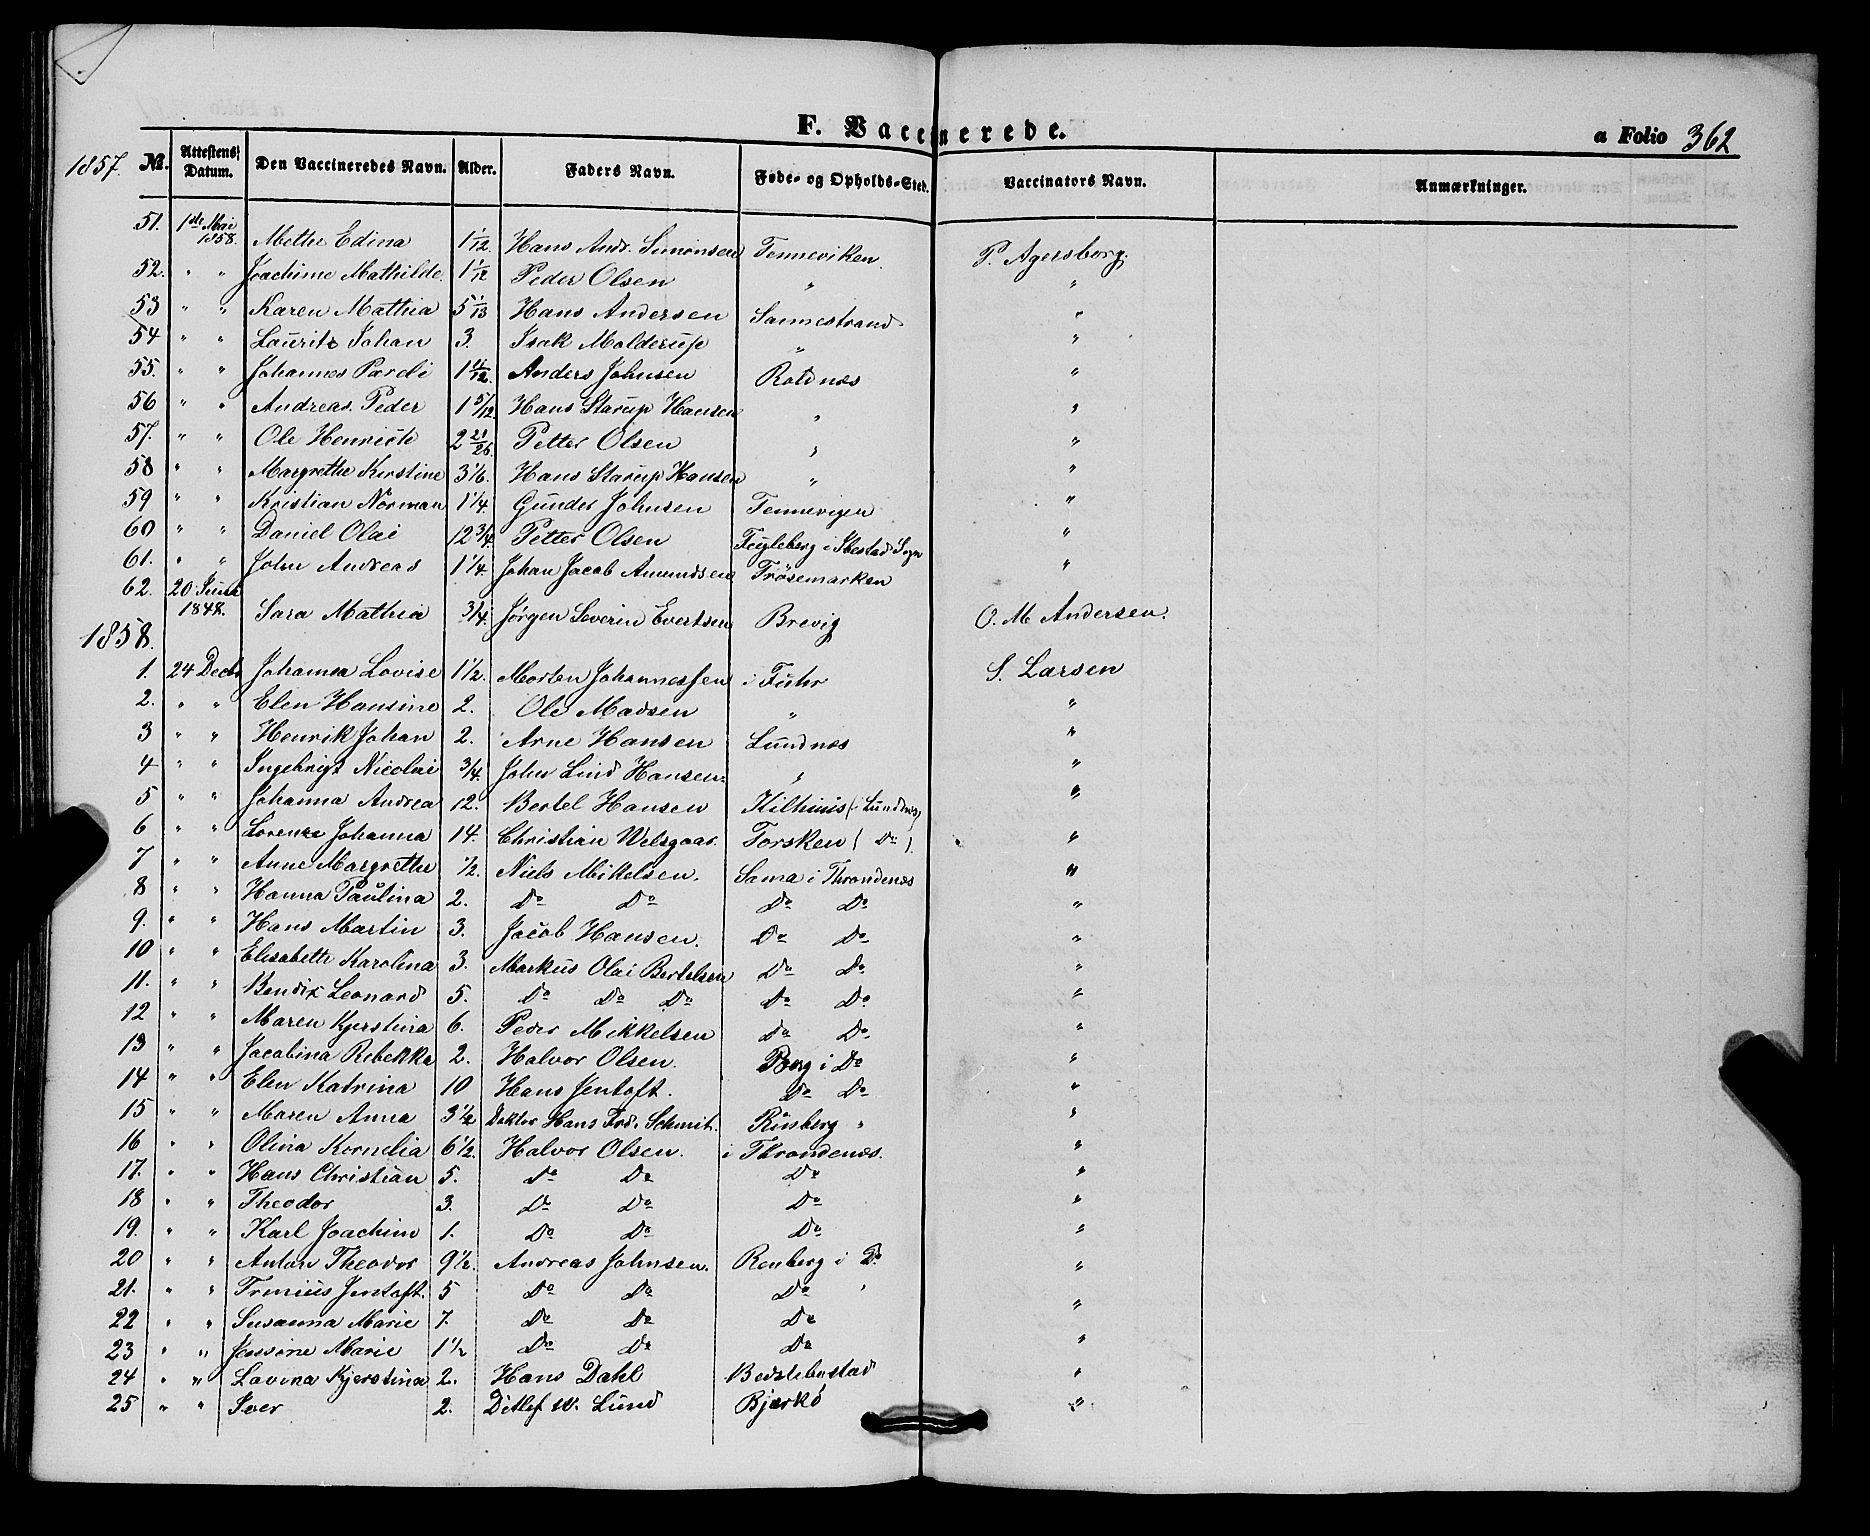 F. Vaccinerede.
a Folio 362
1857. No. Attestens Datum. Den Vaccineredes Navn. Alder. Faders Navn. Føde- og Opholds-Sted. Vaccinators Navn. Anmærkninger.
51. 1ste Mai 1858. Mette Edina 1 1/12. Hans Andr. Simonsen Tenneviken. P. Agersborg.
52. " " Joachime Mathilde. 1 1/12 Peder Olsen " "
53 " " Karen Mathia 5 1/13 Hans Andersen Sannestrand "
54 " " Lauritz Johan 3. Isak Molderup " "
55. " " Johannes Pardi 1 11/12. Anders Johnsen Rotdnæs "
56 " " Andreas Peder 1 5/12. Hans Starup Hansen " "
57. " " Ole Henrich 2 21/26. Petter Olsen " "
58 " " Margrethe Kirstine 3 1/6. Hans Starup Hansen " "
59 " " Kristian Norman 1 1/4. Gunder Johnsen Tennevigen "
60 " " Daniel Olai 12 3/4. Petter Olsen Fugleberg i Ibestad Sogn "
61. " " John Andreas 1 1/4. Johan Jacob Amundsen Trösemarken "
62. 20 Juni 1848. Sara Mathia 3/4. Jørgen Severin Evertsen Brevig O. M. Andersen.
1858.
1. 24 Decbr Johanna Lovise 1 1/2. Morten Johannessen i Fuhr S. Larsen
2. " " Elen Hansine 2. Ole Madsen " "
3 " " Henrik Johan 2. Arne Hansen Lundnæs "
4 " " Ingebrigt Nicolai 3/4. John Lind Hansen. " "
5 " " Johanna Andrea 12. Bertel Hansen Kilhuus (i Lundnæs) "
6 " " Lorenze Johanna 14. Christian Welsgaar. Torsken (Do). "
7 " " Anne Margrethe 1/2. Niels Mikelsen. Sama i Throndenæs "
8 " " Hanna Paulina 2. Do Do Do Do "
9. " " Hans Martin 3. Jacob Hansen. Do Do "
10 " " Elisabeth Karolina 3. Markus Olai Bertelsen Do Do "
11. " " Bendix Leonard 5. Do Do Do Do Do "
12 " " Maren Kjerstina 6. Peder Mikkelsen Do Do "
13 " " Jacobina Rebekka 2. Halvor Olsen. Berg i Do "
14 " " Elen Katrina 10 Hans Jentoft. Do Do "
15 " " Maren Anna 3 1/2 Doktor Hans Frd. Schmit. Rinberg " "
16 " " Olina Kornelia 6 1/2. Halvor Olsen. i Throndenæs. "
17. " " Hans Christian 5. Do Do Do "
18 " " Theodor 3. Do Do Do "
19. " " Karl Joachim 1. Do Do Do "
20 " " Anton Theodor 9 1/2. Andreas Johnsen. Renberg i Do "
21. " " Trinius Jentoft. 5 Do Do Do " "
22 " " Susanna Marie 7. Do Do Do "
23 " " Jessine Marie 1 1/2 Do Do Do "
24 " " Lavina Kjerstina 2. Hans Dahl "
25 " " Iver 2. Ditlef W. Lund Bjarkö "